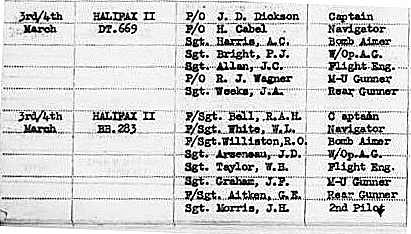 3rd/4th HALIFAX II P/O J. D. Dickson Captain
March DT.669 P/O H. Cabel Navigator
Sgt. Harris, A.C. Bomb Aimer
Sgt. Bright, P.J. W/Op.A.G.
Sgt. Allan, J.C. Flight Eng.
P/O R. J. Wagner M-U Gunner
Sgt. Weeks, J.A. Rear Gunner
3rd/4th HALIFAX II F/Sgt. Bell,R.A.H. C aptain
March BB.283 F/Sgt. White, W.L. Navigator
F/Sgt.Williston,R.O. Bomb Aimer
Sgt. Arseneau, J.D. W/Op.A.G.
Sgt. Taylor, W.H. Flight Eng.
Sgt. Graham, J.F. M-U Gunner
F/Sgt. Aitken, G.E. Rear Gunner
Sgt. Morris, J.H. 2nd Pilot